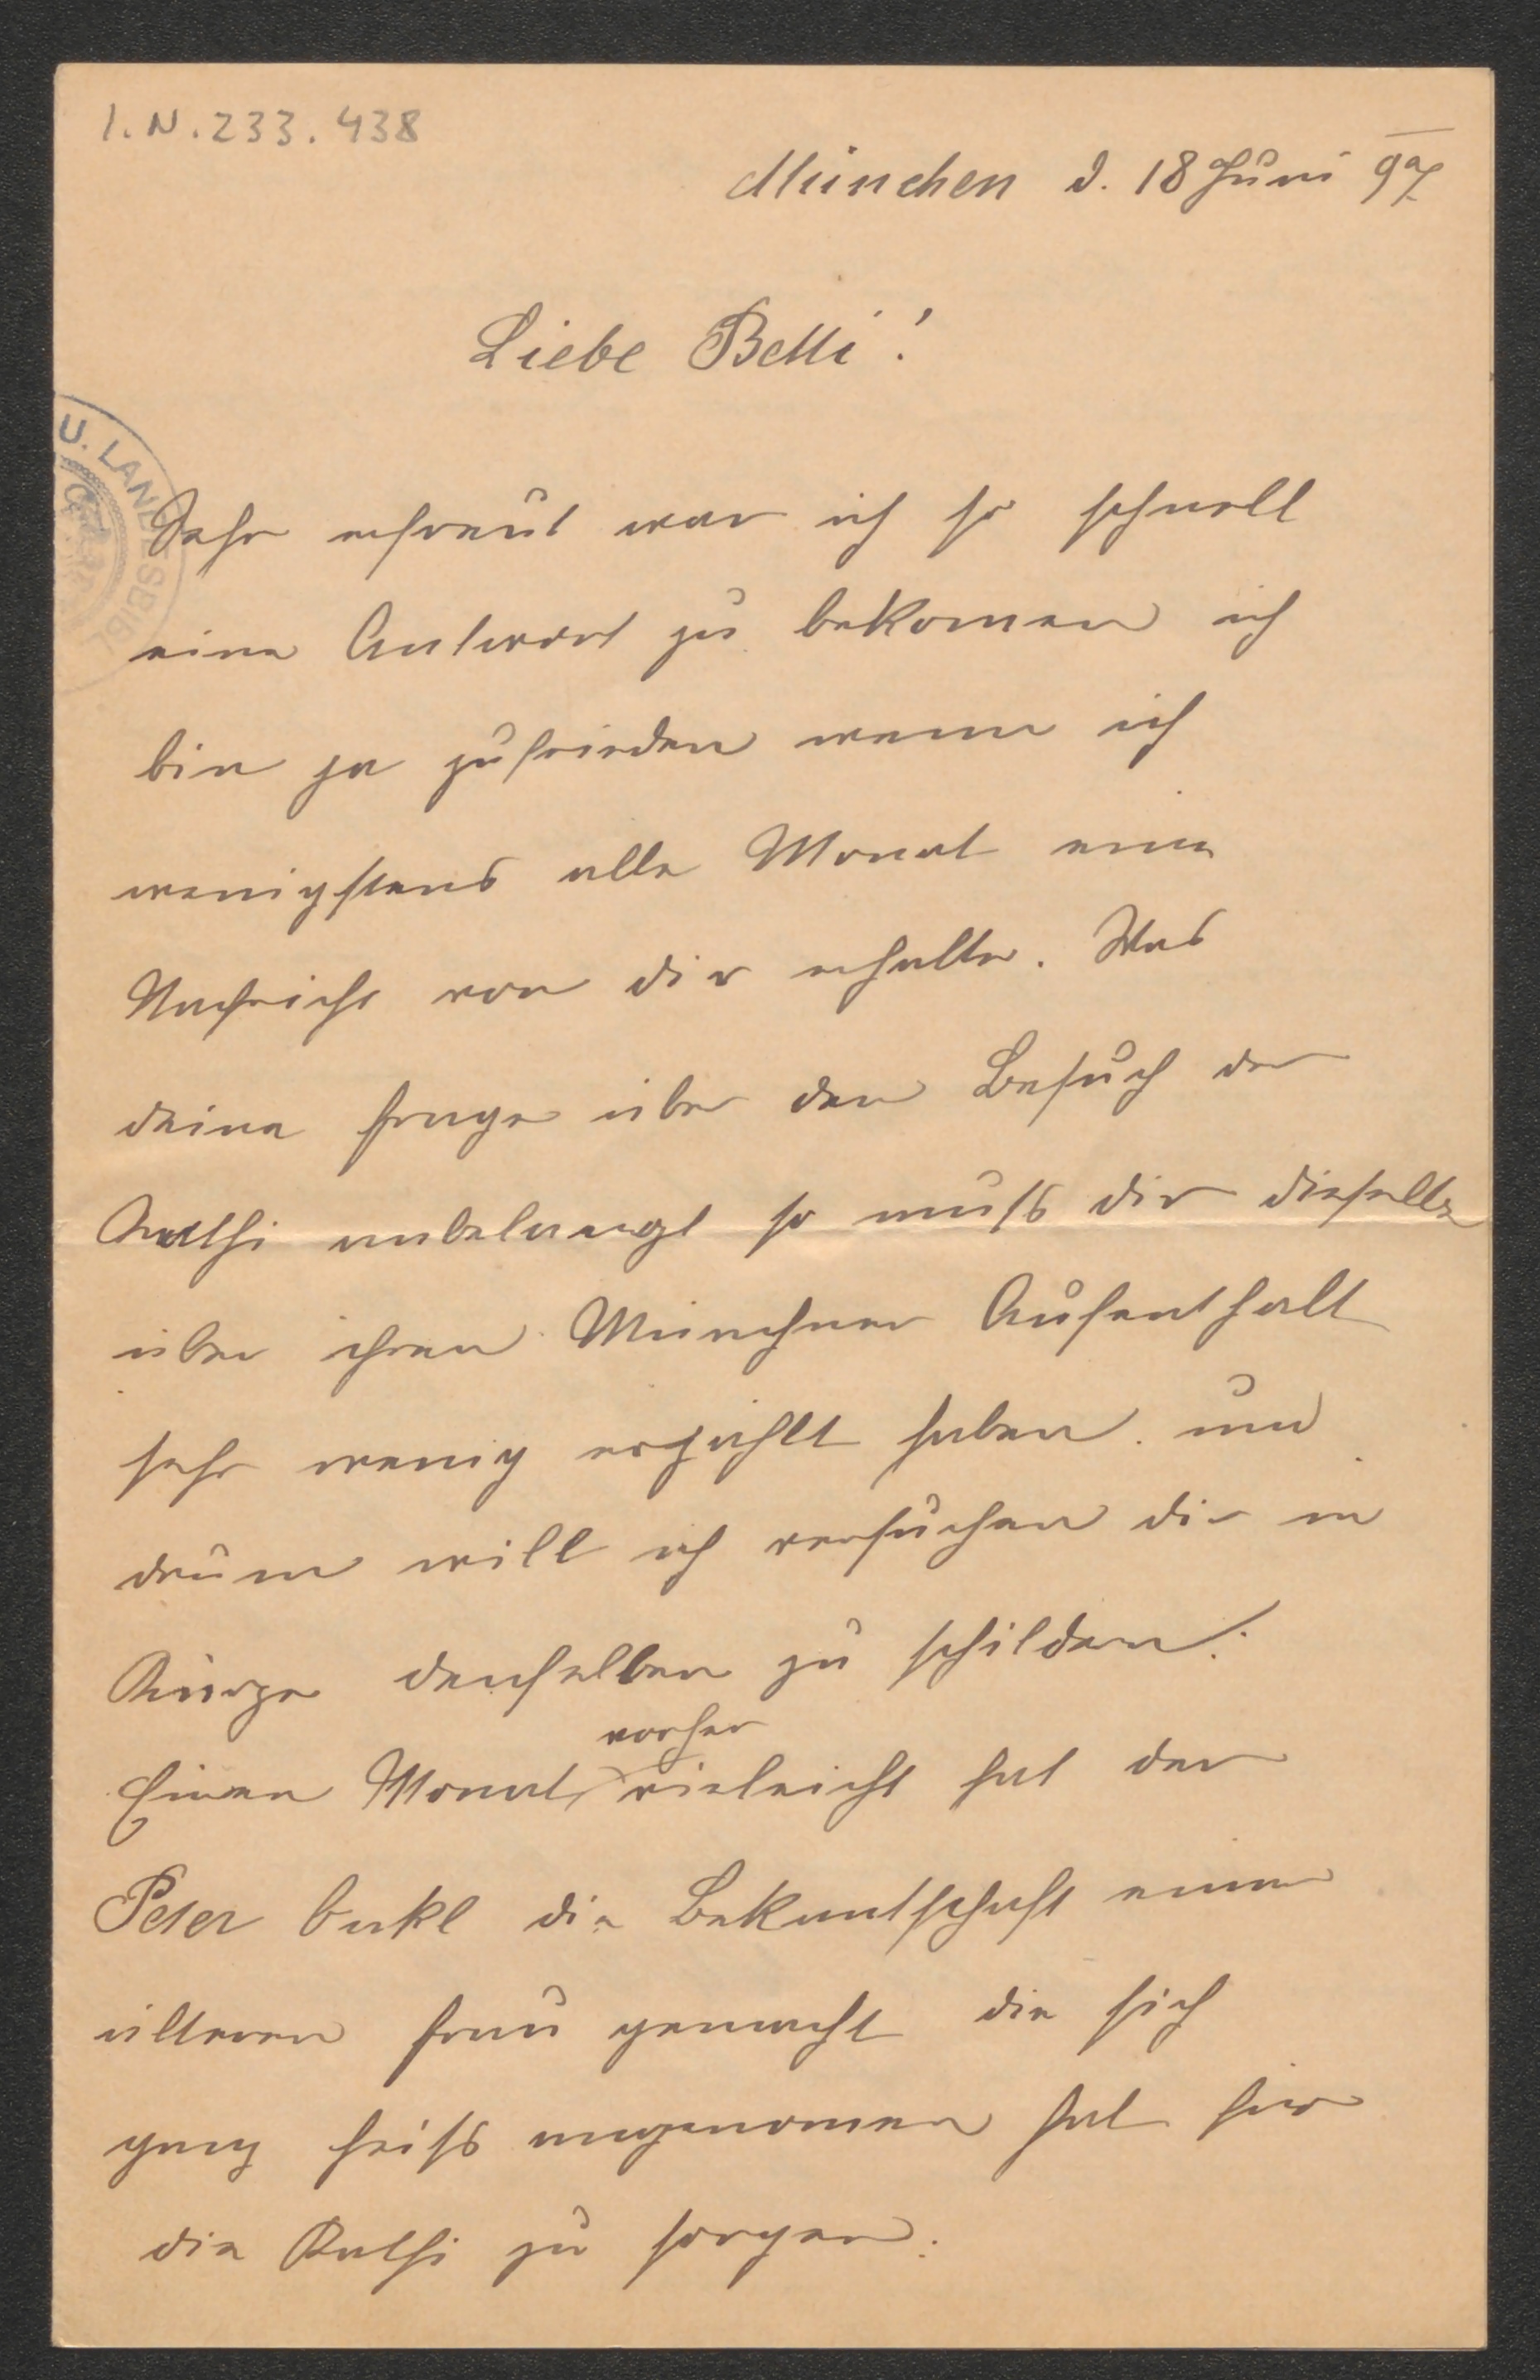 I.N. 233.438
München d. 18 Juni 97
Liebe Betti!
U. LANDESBIBL
Sehr erfreut war ich so schnell
eine Antwort zu bekomen ich
bin ja zufrieden wenn ich
wenigstens alle Monat eine
Nachricht von dir erhalte. Was
deine Frage über den Besuch der
Kathi anbelangt so muß dir dieselbe
über ihren Münchner Aufenthalt
sehr wenig erzählt haben. und
drum will ich versuchen dir in
Kürze denselben zu schildern.
vorher
Einen Monat vieleicht hat der
Peter Onkl die Bekantschaft einer
älteren Frau gemacht die sich
ganz heiß angenomen hat für
die Kathi zu sorgen.